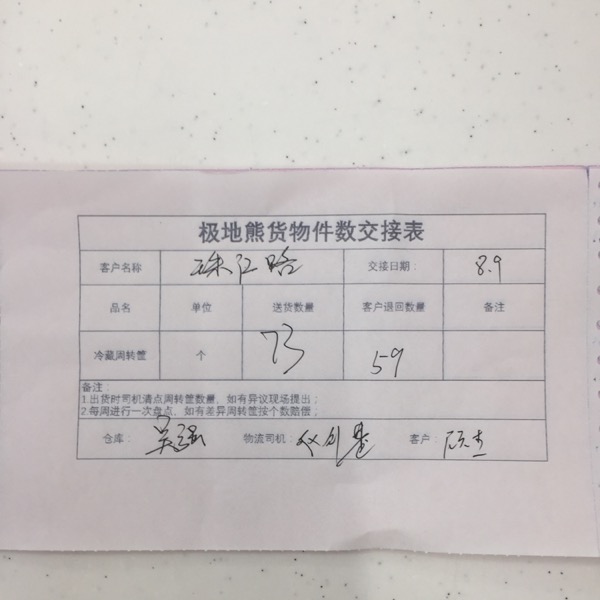 极地熊货物件数交接表
客户名称 珠江路 交接日期： 8.9
品名 单位 送货数量 客户退回数量 备注
冷藏周转筐 个 73 59
备注：
1.出货时司机清点周转筐数量，如有异议现场提出；
2.每周进行一次盘点，如有差异周转筐按个数赔偿；
仓库： 吴强 物流司机： 客户： 顾杰